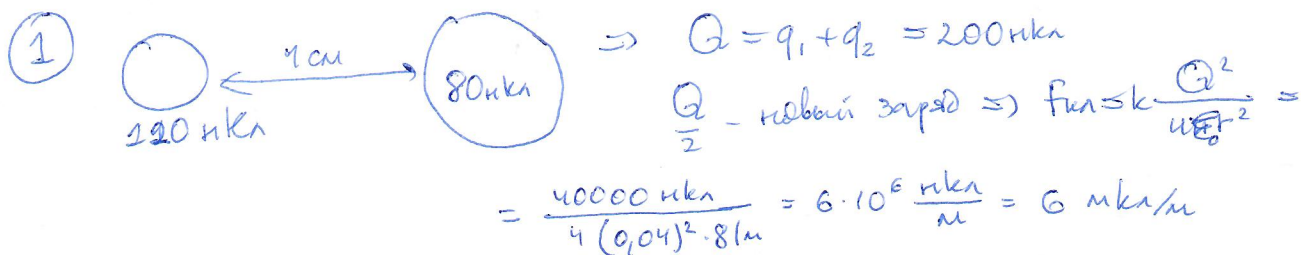 1 4 см 80 нкл ⇒ Q = q₁ + q₂ = 200 нкл
120 нКл Q/2 - новый заряд ⇒ Fкл = k Q²/4r² =
= 40000 нкл / 4 (0,04)² · 8 (м = 6·10⁶ нкл/м = 6 мкл/м